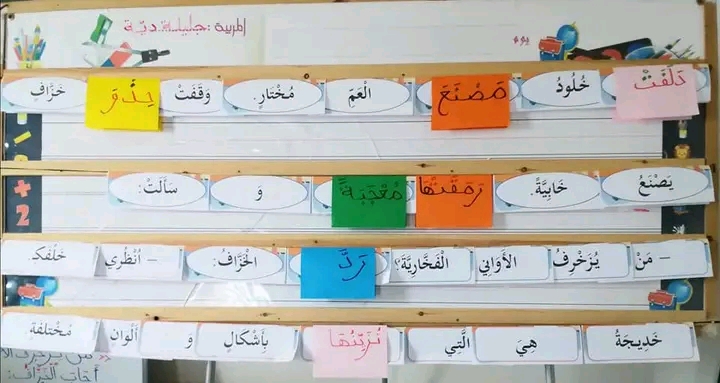 المربية : جليلة دبّة
يوم
دَلَفَتْ خُلُودُ مَصْنَعَ الْعَمِّ مُخْتَارٍ. وَقَفَتْ حِذْوَ خَزَّافٍ
يَصْنَعُ خَابِيَّةً. رَمَقَتْهَا مُعْجَبَةً وَ سَأَلَتْ:
- مَنْ يُزَخْرِفُ الأَوَانِي الْفَخَّارِيَّةَ؟ رَدَّ الْخَزَّافُ: - اُنْظُرِي خَلْفَكِ
خَدِيجَةُ هِيَ الَّتِي تُزَيِّنُهَا بِأَشْكَالٍ وَ أَلْوَانٍ مُخْتَلِفَةٍ.
أجاب الخزّاف: